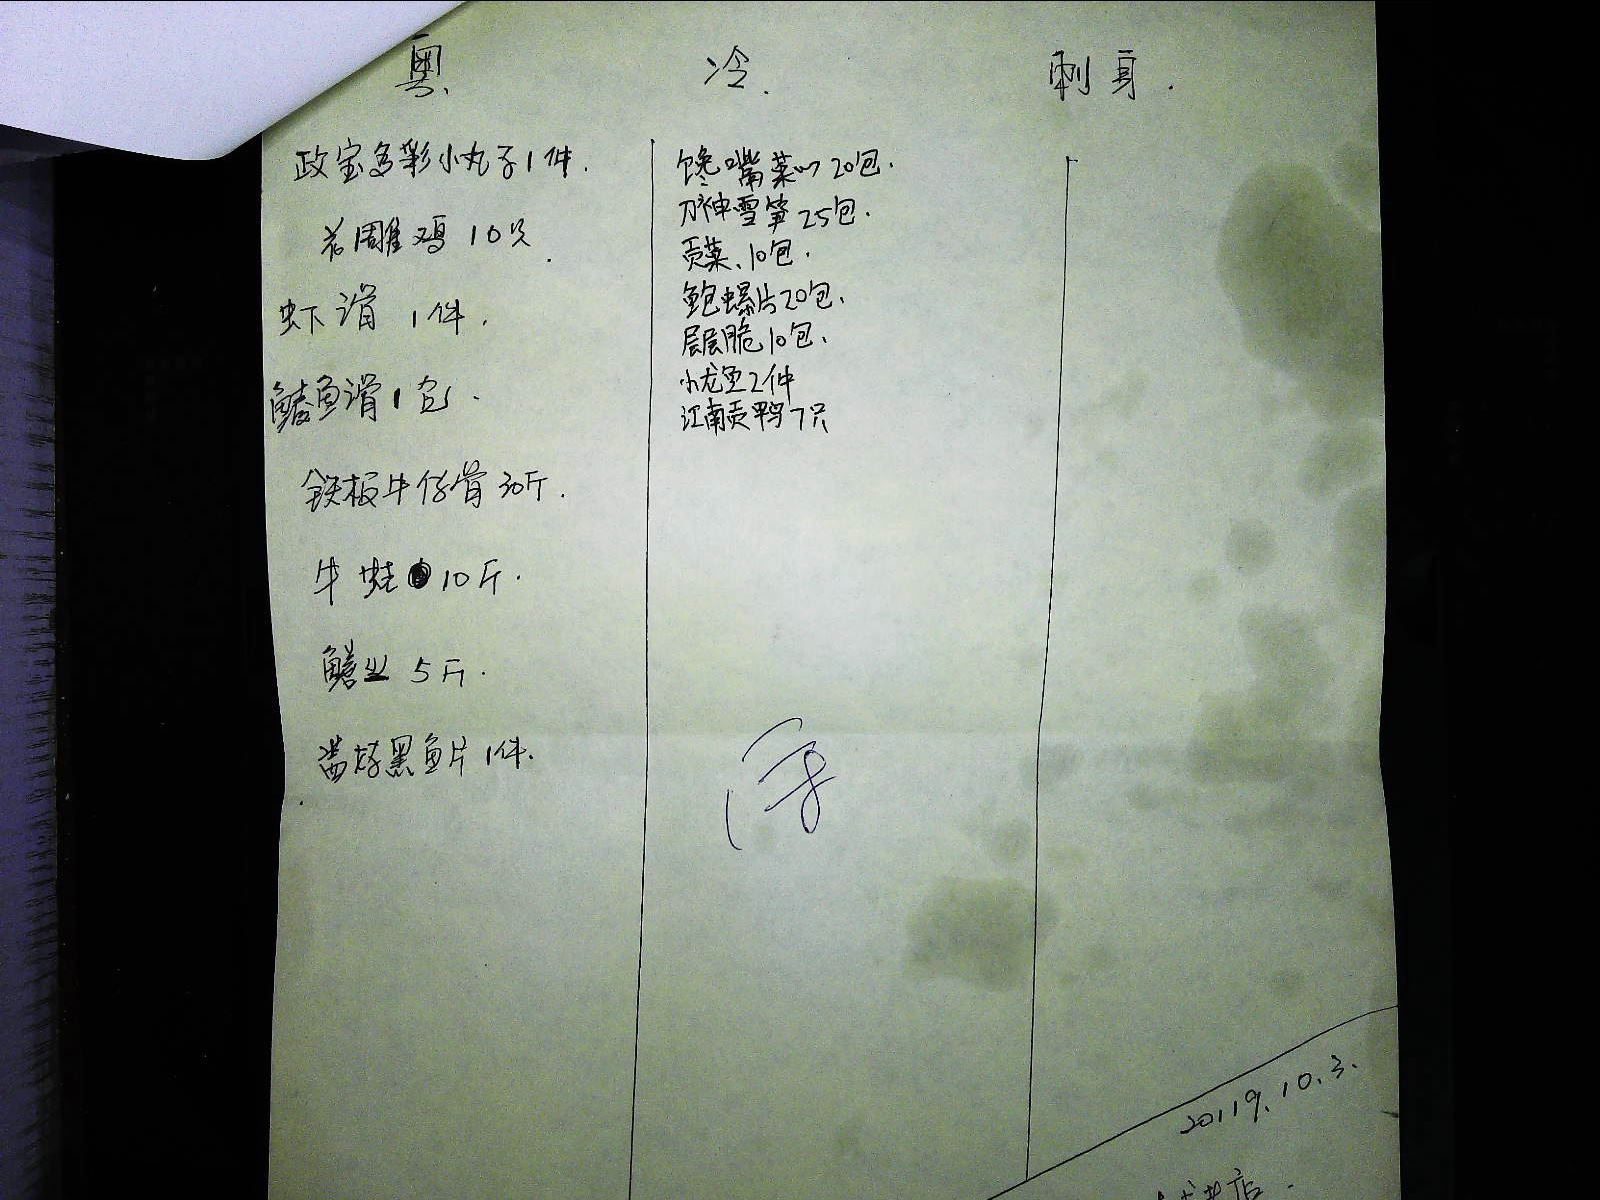 粤.
政宝多彩小丸子1件.
花雕鸡10只.
虾滑1件.
鱼滑1包.
铁板牛仔骨30斤.
牛蛙10斤.
5斤.
黑鱼片1件.
冷.
馋嘴菜心20包.
刀神雪笋25包.
贡菜、10包.
鲍螺片20包.
层层脆10包.
小龙鱼2件
江南贡鸭7只
刺身.
20119.10.3.
店.